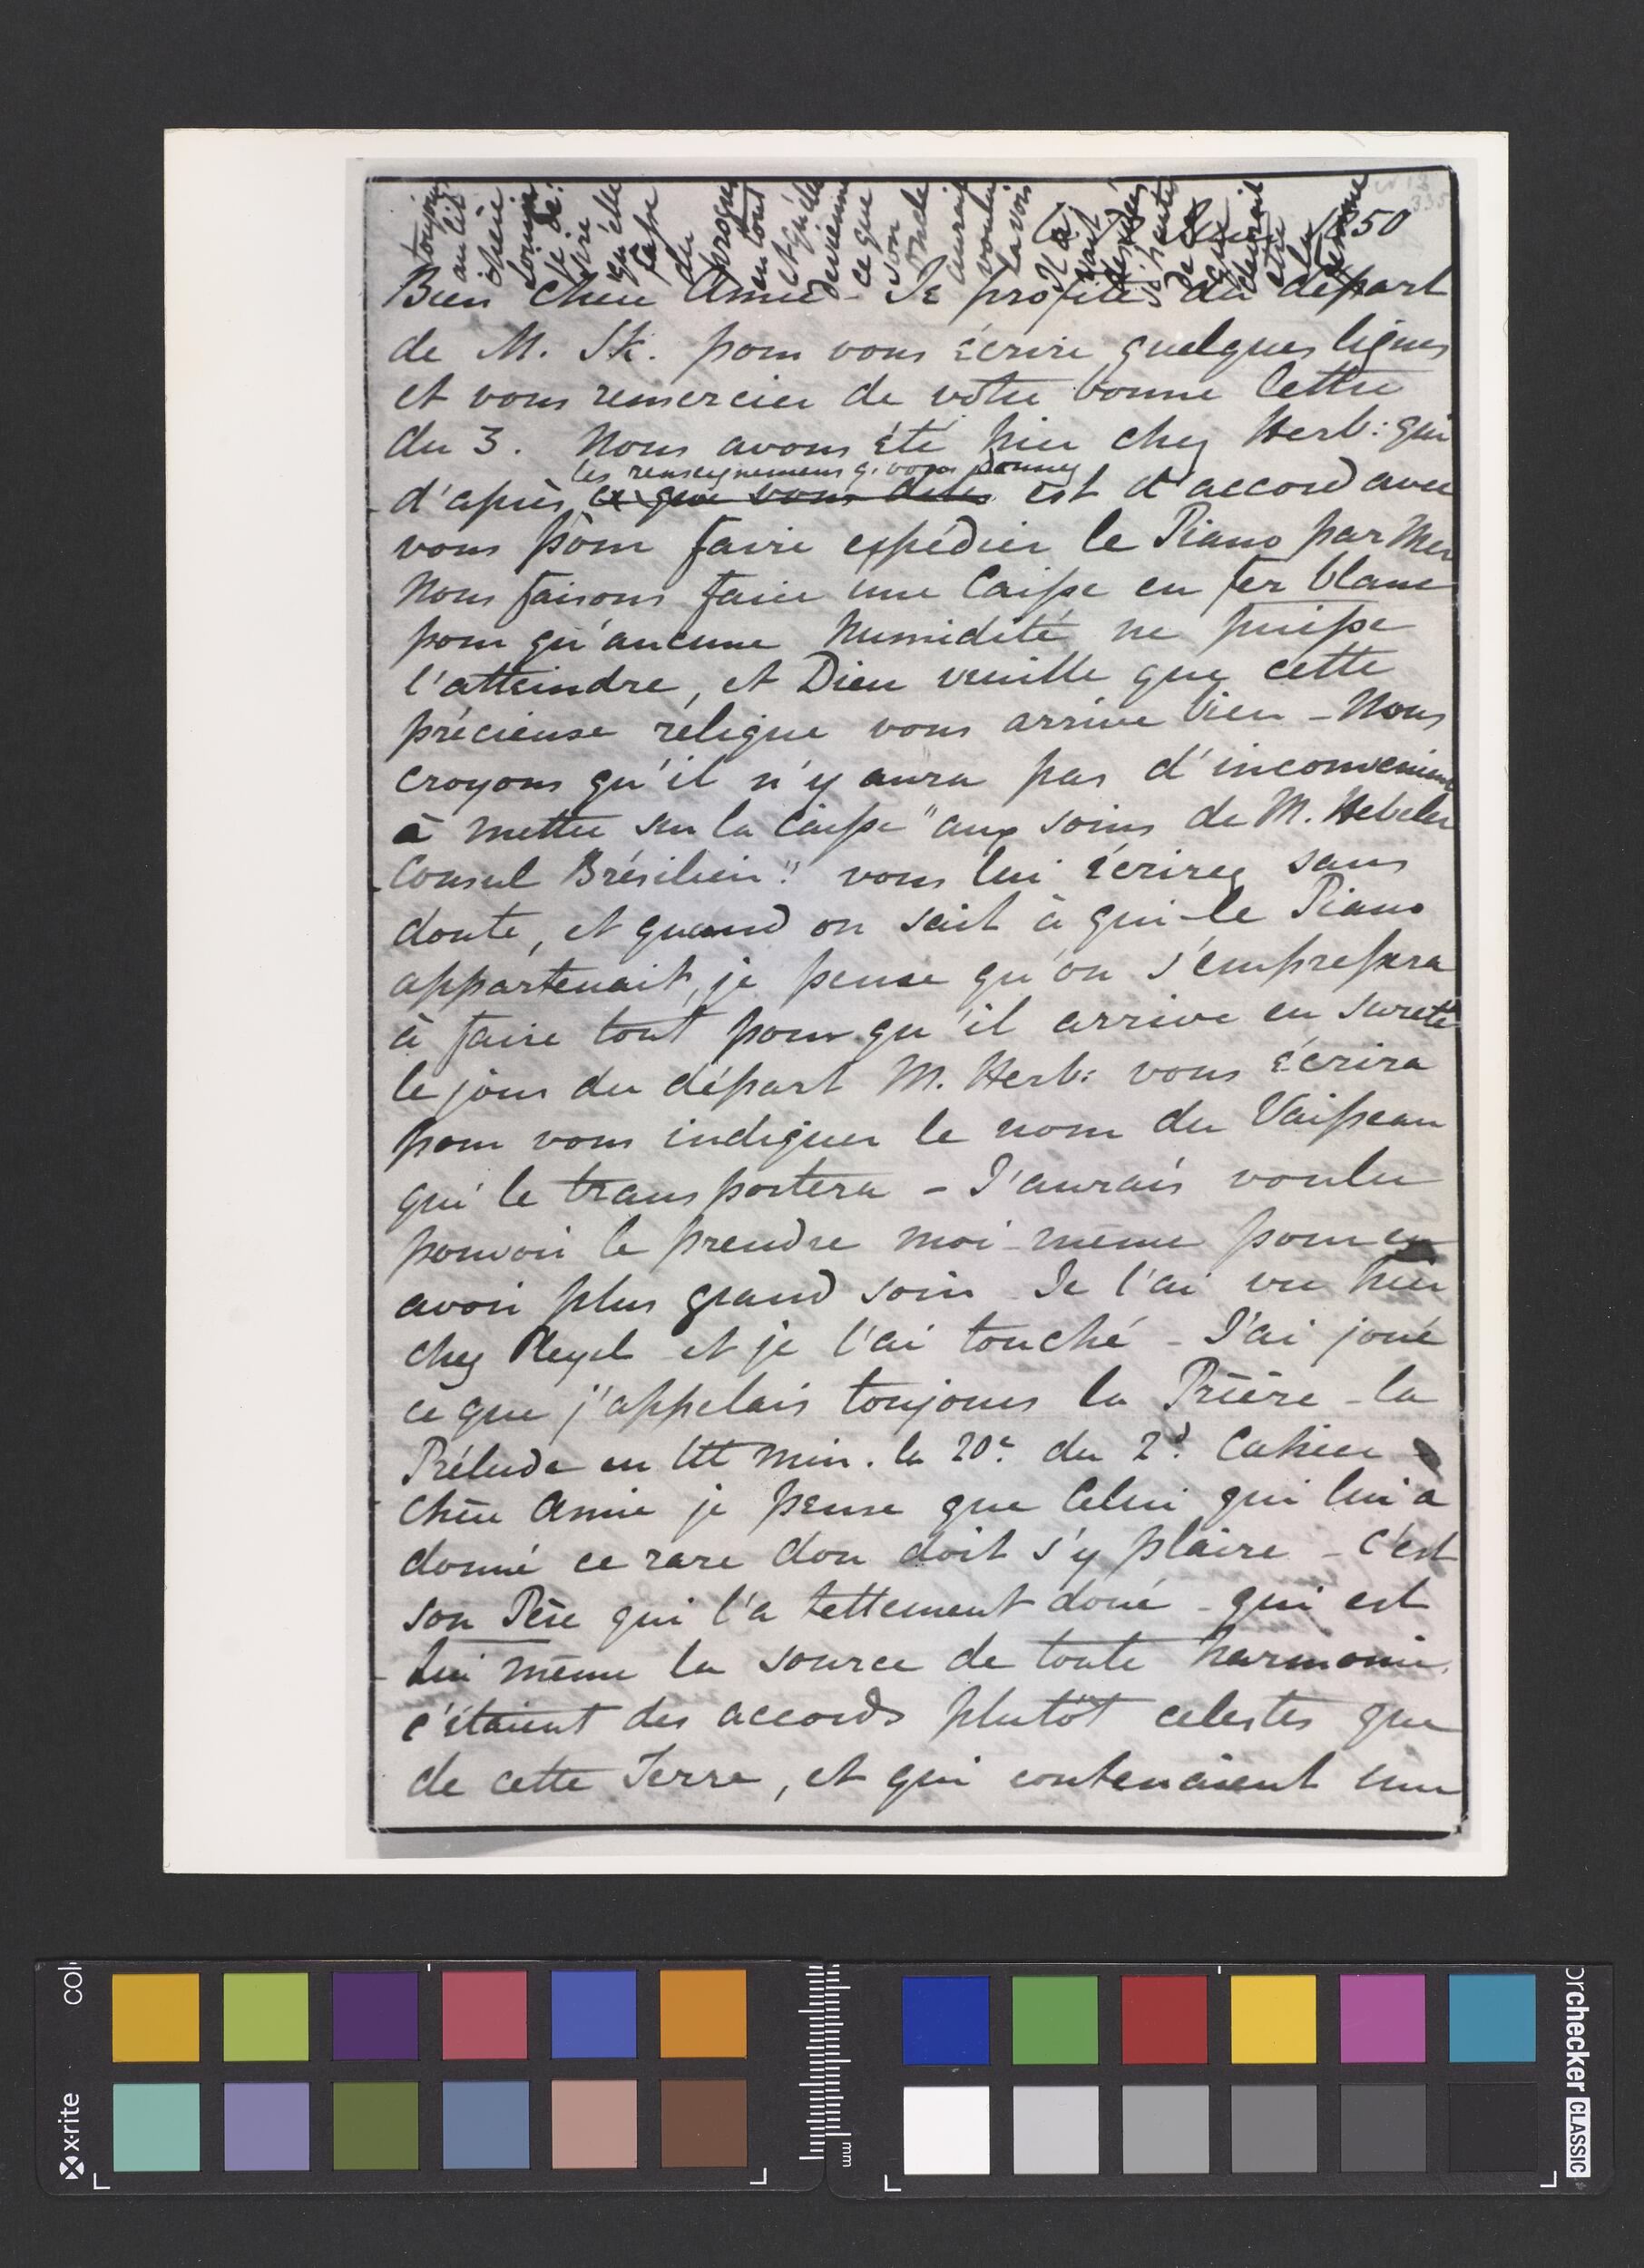 toujours
au lit
chère
Louise
je dé:
sire
qu'elle
fasse
du
progrès
en tout
et qu'elle
devienne
ce que
son
oncle
aurait
voulu
la voir
Il a
vait
des idées
si hautes
de ce
que
devrait
être
la
femme
1850
Bien chère Amie - Je profite du départ
de M. St. pour vous écrire quelques lignes
et vous remercier de votre bonne lettre
du 3. Nous avons été hier chez Herb: qui
les renseignemens q. vous donnez
d'après ce que vous dites est d'accord avec
vous pour faire expédier le Piano par Mer
Nous faisons faire une Caisse en fer blanc
pour qu'aucune humidité ne puisse
l'atteindre, et Dieu veuille que cette
précieuse rélique vous arrive bien - Nous
croyons qu'il n'y aura pas d'inconvenient
à mettre sur la Caisse "aux soins de M. Hebeler
Consul Brésilien" vous lui écrirez sans
doute, et quand on sait à qui le Piano
appartenait, je pense qu'on s'empressera
à faire tout pour qu'il arrive en sureté
le jour du départ M. Herb: vous écrira
pour vous indiquer le nom du Vaisseau
qui le transportera - J'aurais voulu
pouvoir le prendre moi-même pour en
avoir plus grand soin - Je l'ai vu hier
chez Pleyel et je l'ai touché - J'ai joué
ce que j'appelais toujours la Prière - la
Prélude en Ut min. la 20e du 2d Cahier
Chère Amie je pense que Celui qui lui a
donné ce rare don doit s'y plaire - C'est
son Père qui l'a tellement doué - qui est
Lui même la source de toute harmonie.
c'étaient des accords plutôt celestes que
de cette Terre, et qui contenaient une
x-rite
colorchecker CLASSIC
mm